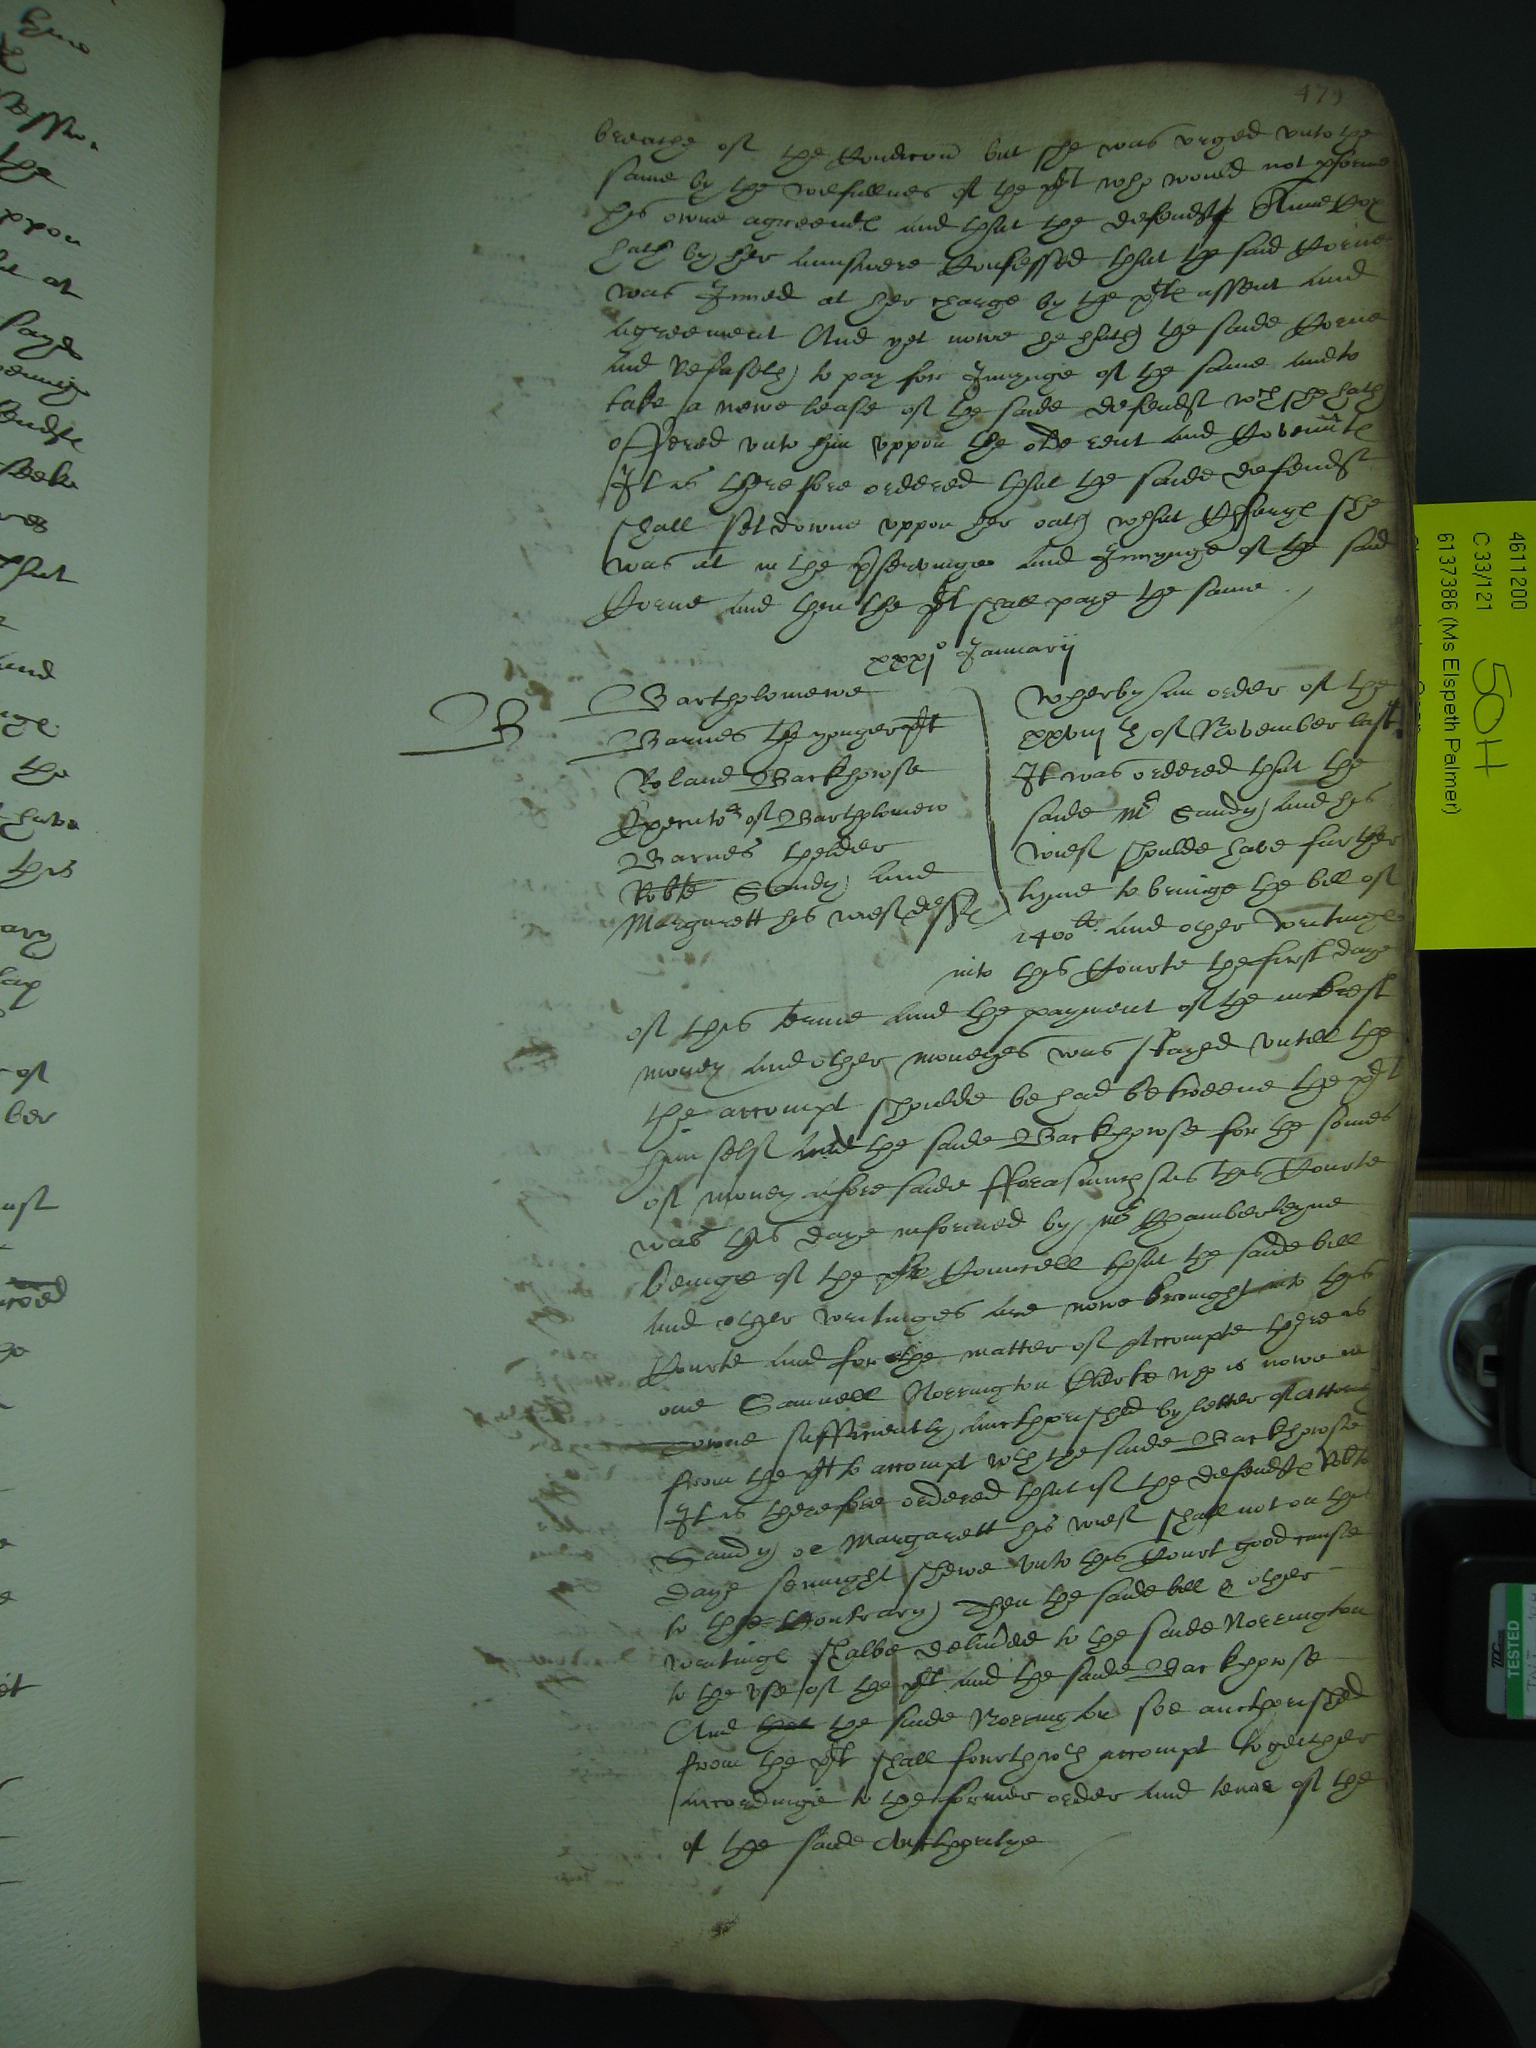 479
breache of the Condicon but she was vrged vnto the
same by the wilfullnes of the plt who would not pforme
his owne agreemt and that the defendt Anne Cox
hath by her aunswere Confessed that the said Corne
was Inned at her charge by the plts assent and
agreement And yet nowe he hath the saide Corne
and Refuseth to pay for Innynge of the same and to
take a newe lease of the saide defendt wch she hath
offered vnto him vppon the olde rent and Covennts
It is therefore ordered that the saide defendt
shall set downe vppon her oath what Charge she
was at in the pservinge and Innynge of the said
Corne and then the plt shall paye the same
xxxjo Januarij
B
Bartholomewe
Barnes the yonger plt
Roland Backhowse
Executor of Bartholomew
Barnes thelder
Robte Sandy and
Margarett his wief defts
Wherby an order of the
xxviij th of November last
It was ordered that the
saide Mr Sandy and his
wief shoulde have further
tyme to bringe the bill of
1400li and other writinges
into this Courte the first daye
of this terme and the payment of the interest
money and other moneyes was stayed vntill the
the accompt shoulde be had betweene the plt
him self and the saide Backhowse for the somes
of money aforesaide fforasmuch as this Courte
was this daye informed by Mr Chamberleyne
beinge of the plts Councell that the saide bill
and other writinges are nowe brought into this
Courte and for the matter of Accompte there is
one Samuell Norrington Clerke who is nowe in
towne sufficiently aucthorished by letter of Attorney
from the plt to accompt wth the saide Backhowse
It is therefore ordered that if the defendts Robte
Sandy or Margarett his wief shall not on this
daye senight shewe vnto this Court good cause
to the Contrary Then the saide bill & other
writinges shalbe delivred to the saide Norrington
to the vse of the plt and the saide Backhowse
And that the saide Norrington soe aucthorished
from the plt shall fourthwth accompt together
accordinge to the former order and tenor of the
of the saide Aucthoritye
4611200
C 33/121
50H
6137386 (Ms Elspeth Palmer)
TESTED